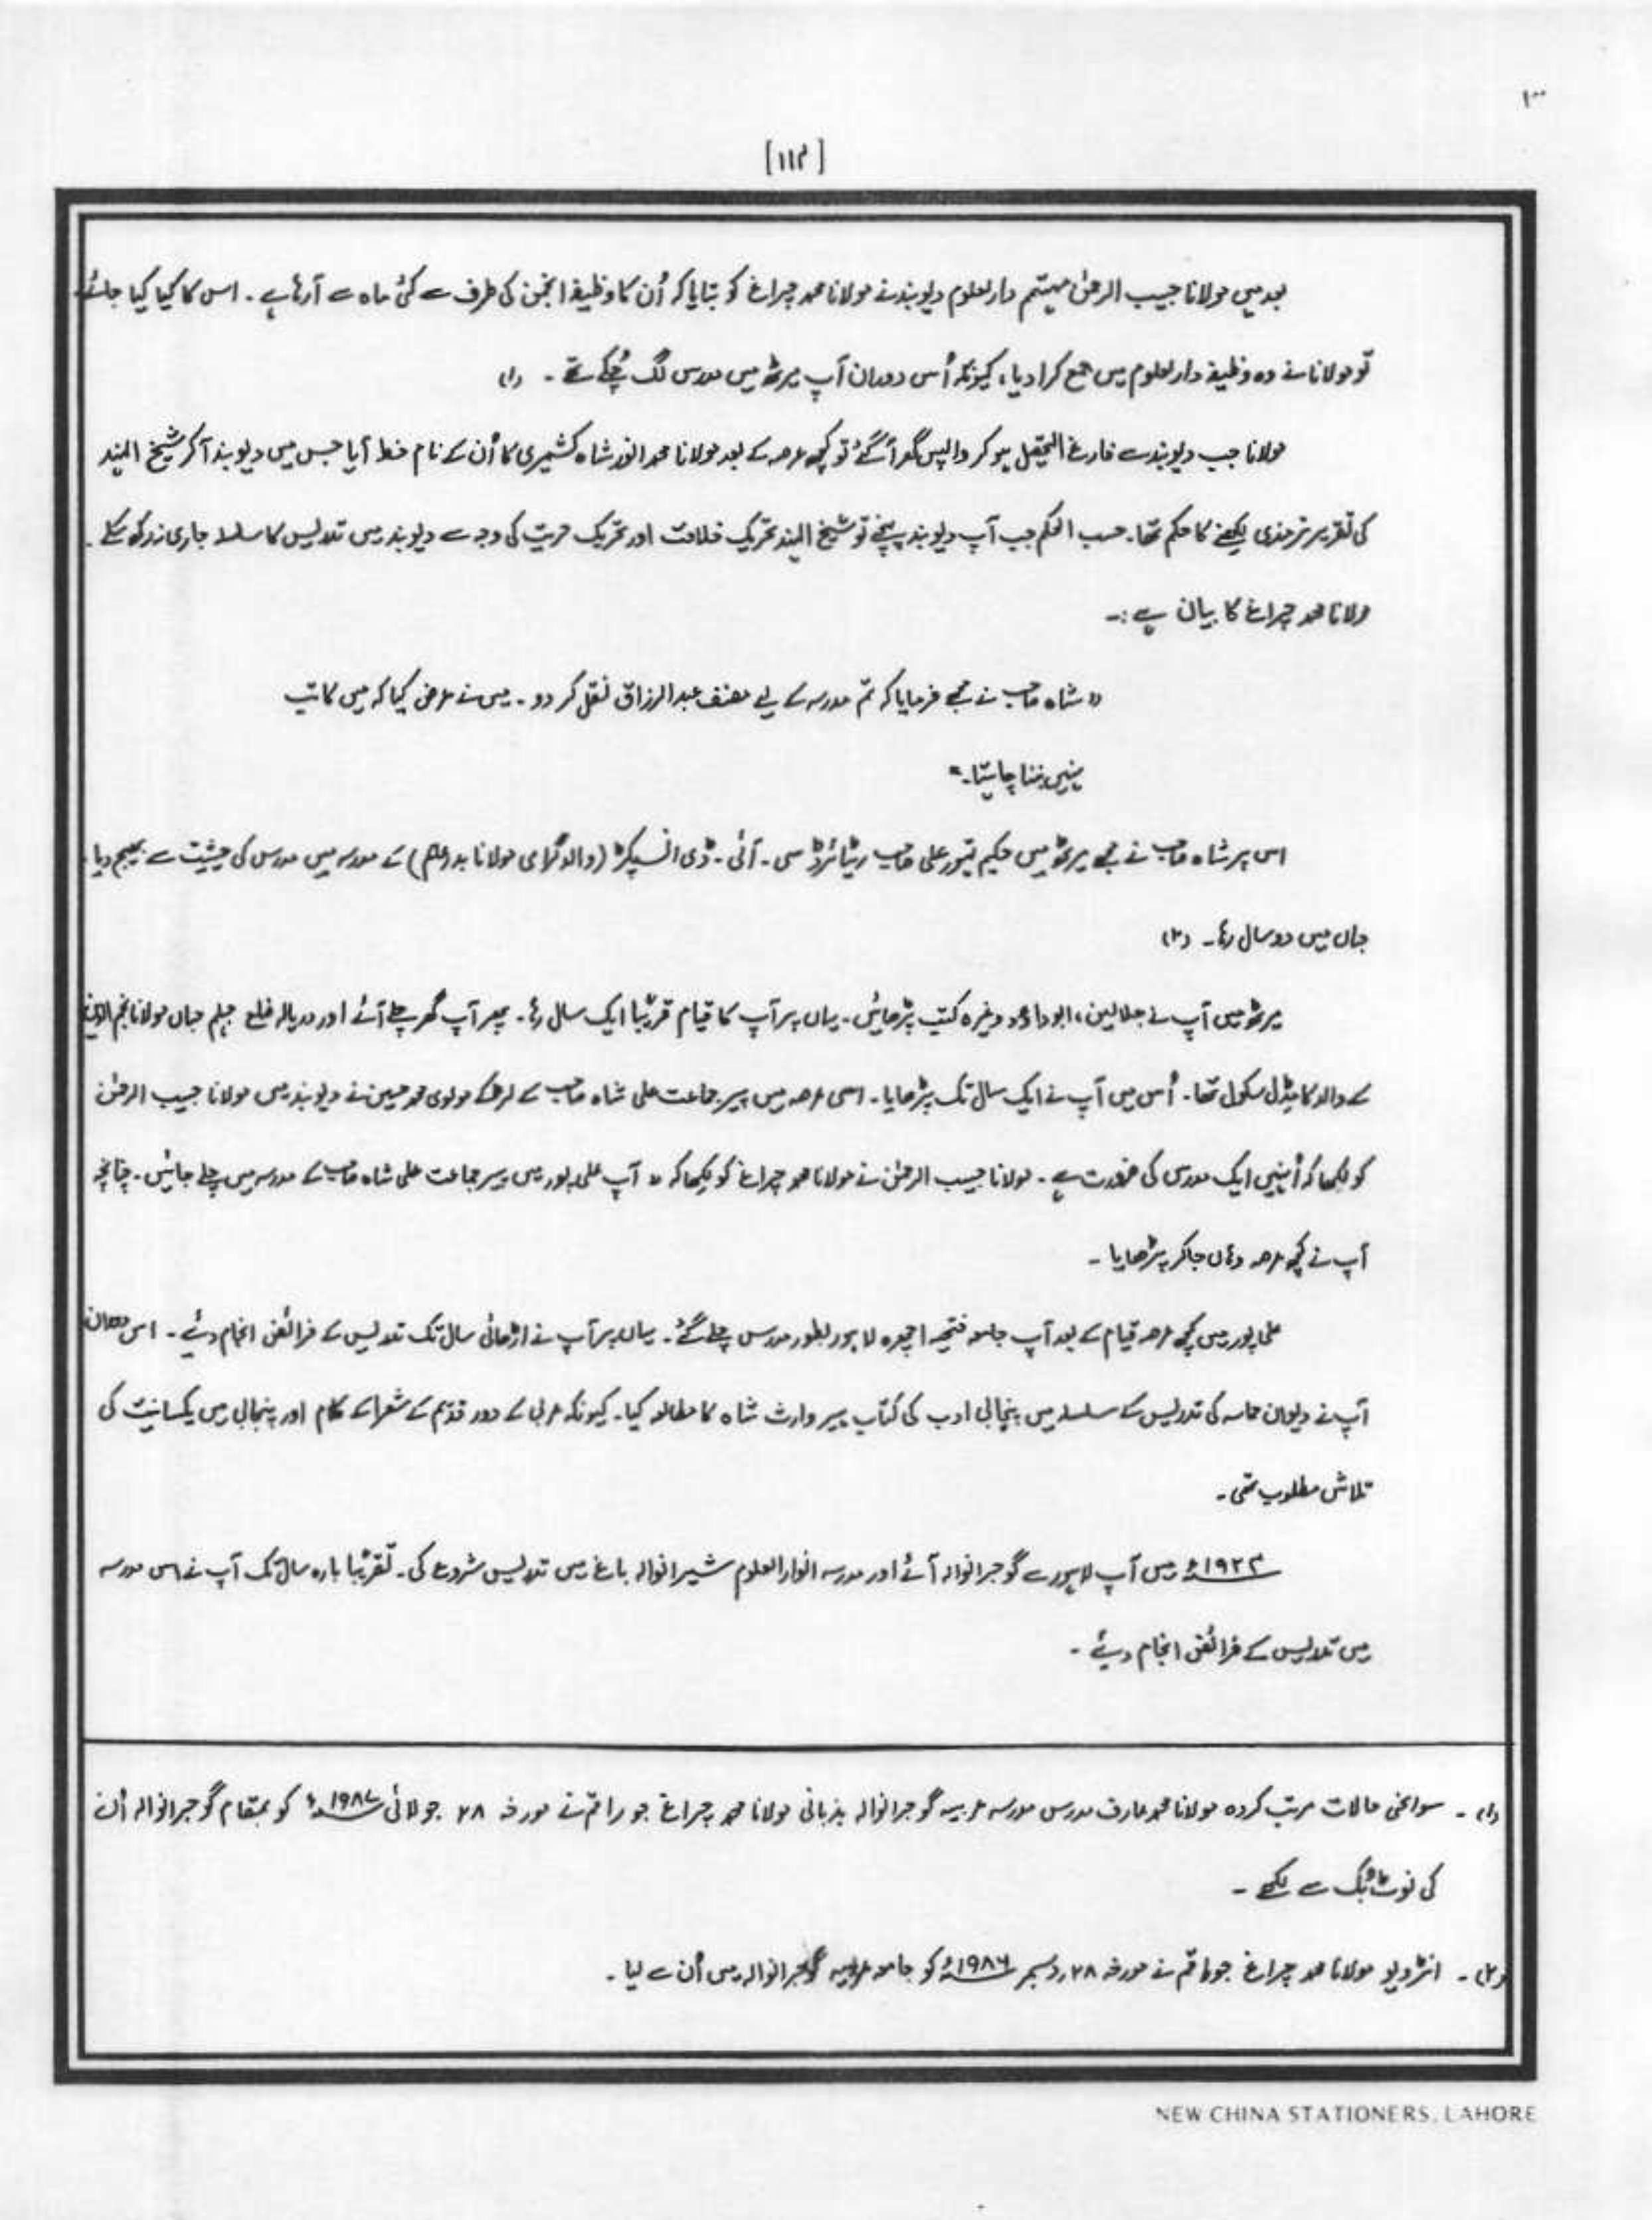 [۱۱۴]
بعد میں مولانا حبیب الرحمٰن مہتمم دارلعلوم دیوبند نے مولانا محمد چراغ کو بتایا کہ اُن کا وظیفہ انجمن کی طرف سے کئی ماہ سے آرہا ہے ۔ اس کا کیا کیا جائے
تو مولانا نے وہ وظیفہ دارلعلوم میں جمع کرا دیا، کیونکہ اُس دوران آپ میرٹھ میں مدرس لگ چُکے تھے ۔ (۱)
مولانا جب دیوبند سے فارغ التحصیل ہو کر واپس گھر آ گئے تو کچھ عرصہ کے بعد مولانا محمد انور شاہ کشمیری کا اُن کے نام خط آیا جس میں دیوبند آکر شیخ الہند
کی تقریر ترمذی لکھنے کا حکم تھا۔ حسب الحکم جب آپ دیوبند پہنچے تو شیخ الہند تحریک خلافت اور تحریک حریت کی وجہ سے دیوبند میں تدریس کا سلسلہ جاری نہ رکھ سکے ۔
مولانا محمد چراغ کا بیان ہے :۔
" شاہ صاحب نے مجھے فرمایا کہ تم مدرسہ کے لیے مصنف عبدالرزاق نقل کر دو ۔ میں نے عرض کیا کہ میں کاتب
نہیں بننا چاہتا۔"
اس پر شاہ صاحب نے مجھے میرٹھ میں حکیم تہور علی صاحب ریٹائرڈ سی ۔ آئی ۔ ڈی انسپکٹر (والد گرامی مولانا بدر عالم) کے مدرسہ میں مدرس کی حیثیت سے بھیج دیا
جہاں میں دو سال رہا ۔ (۲)
میرٹھ میں آپ نے جلالین، ابوداؤد وغیرہ کتب پڑھائیں ۔ یہاں پر آپ کا قیام قریباً ایک سال رہا ۔ پھر آپ گھر چلے آئے اور دریالہ ضلع جہلم جہاں مولانا نجم الدین
کے والد کا مڈل سکول تھا ۔ اُس میں آپ نے ایک سال تک پڑھایا ۔ اسی عرصہ میں پیر جماعت علی شاہ صاحب کے لڑکے مولوی محمد حسین نے دیوبند میں مولانا حبیب الرحمٰن
کو لکھا کہ اُنہیں ایک مدرس کی ضرورت ہے ۔ مولانا حبیب الرحمٰن نے مولانا محمد چراغ کو لکھا کہ " آپ علی پور میں پیر جماعت علی شاہ صاحب کے مدرسہ میں چلے جائیں ۔ چنانچہ
آپ نے کچھ عرصہ وہاں جاکر پڑھایا ۔
علی پور میں کچھ عرصہ قیام کے بعد آپ جامعہ فتحیہ اچھرہ لاہور بطور مدرس چلے گئے ۔ یہاں پر آپ نے اڑھائی سال تک تدریس کے فرائض انجام دئیے ۔ اس دوران
آپ نے دیوان حماسہ کی تدریس کے سلسلہ میں پنجابی ادب کی کتاب ہیر وارث شاہ کا مطالعہ کیا ۔ کیونکہ عربی کے دور قدیم کے شعرا کے کلام اور پنجابی میں یکسانیت کی
تلاش مطلوب تھی ۔
میں آپ لاہور سے گوجرانوالہ آئے اور مدرسہ انوارالعلوم شیرانوالہ باغ میں تدریس شروع کی ۔ تقریباً بارہ سال تک آپ نے اس مدرسہ
میں تدریس کے فرائض انجام دیئے ۔
(۱) ۔ سوانحی حالات مرتب کردہ مولانا محمد عارف مدرس مدرسہ عربیہ گوجرانوالہ بزبانی مولانا محمد چراغ جو راقم نے مورخہ ۲۸ جولائی ۱۹۸۷ء کو بمقام گوجرانوالہ اُن
کی نوٹ بُک سے لکھے ۔
(۲) ۔ انٹرویو مولانا محمد چراغ جو راقم نے مورخہ ۲۸ دسمبر ۱۹۸۶ء کو جامعہ عربیہ گوجرانوالہ میں اُن سے لیا ۔
NEW CHINA STATIONERS, LAHORE